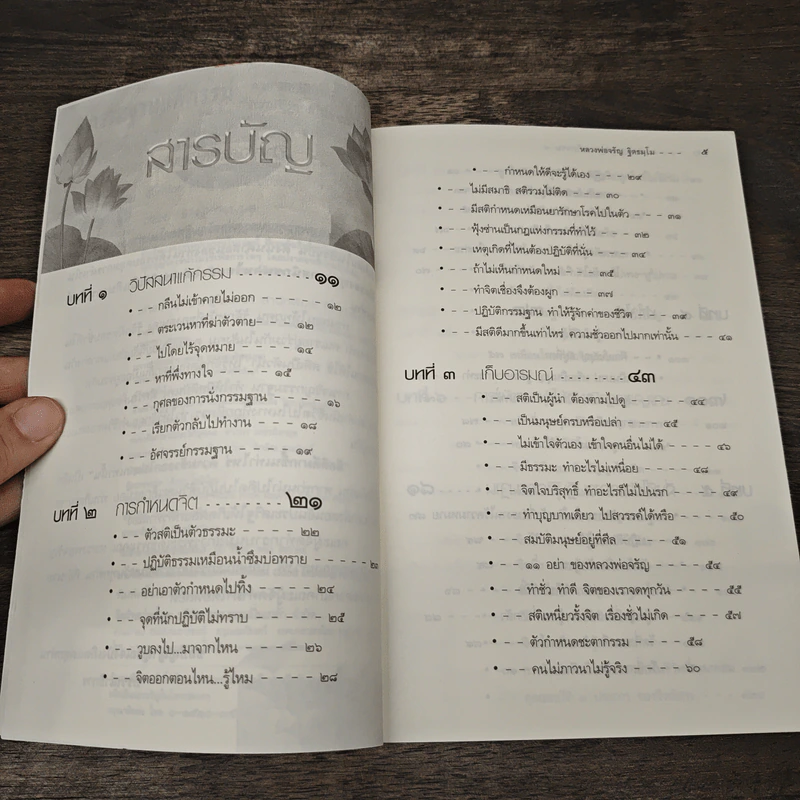 สารบัญ
บทที่ ๑ วิปัสสนาแก้กรรม ........ ๑๑
• - - กลืนไม่เข้าคายไม่ออก - - - - - - - ๑๒
• - - ตระเวนหาที่ฆ่าตัวตาย- - - - - ๑๒
• - - ไปโดยไร้จุดหมาย - - - - - ๑๔
• - - หาที่พึ่งทางใจ - - - - ๑๕
• - - กุศลของการนั่งกรรมฐาน - - - - - ๑๖
• - - เรียกตัวกลับไปทำงาน - - - - ๑๘
• - - อัศจรรย์กรรมฐาน - - - - - ๑๙
บทที่ ๒ การกำหนดจิต ........ ๒๑
• - - ตัวสติเป็นตัวธรรมะ - - - - - ๒๒
• - - ปฏิบัติธรรมเหมือนน้ำซึมบ่อทราย - - - -
• - - อย่าเอาตัวกำหนดไปทิ้ง - - - - ๒๔
• - - จุดที่นักปฏิบัติไม่ทราบ - - - - - ๒๕
• - - วูบลงไป...มาจากไหน - - - - ๒๖
• - - จิตออกตอนไหน...รู้ไหม - - - - ๒๘
หลวงพ่อจรัญ ฐิตธมฺโม - - - ๕
• - - กำหนดให้ดีจะรู้ได้เอง - - - - ๒๙
• - - ไม่มีสมาธิ สติรวมไม่ติด - - - - ๓๐
• - - มีสติกำหนดเหมือนยารักษาโรคไปในตัว - - - - ๓๑
• - - ฟุ้งซ่านเป็นกฎแห่งกรรมที่ทำไว้ - - - - ๓๒
• - - เหตุเกิดที่ไหนต้องปฏิบัติที่นั่น - - - - ๓๔
• - - ถ้าไม่เห็นกำหนดใหม่ - - - - ๓๕
• - - ทำจิตเชื่องจึงต้องผูก - - - - ๓๗
• - - ปฏิบัติกรรมฐาน ทำให้รู้จักค่าของชีวิต - - - - ๓๙
• - - มีสติดีมากขึ้นเท่าไหร่ ความชั่วออกไปมากเท่านั้น - - - - ๔๑
บทที่ ๓ เก็บอารมณ์ ........ ๔๓
• - - สติเป็นผู้นำ ต้องตามไปดู - - - - - ๔๔
• - - เป็นมนุษย์ครบหรือเปล่า - - - - ๔๕
• - - ไม่เข้าใจตัวเอง เข้าใจคนอื่นไม่ได้ - - - - ๔๖
• - - มีธรรมะ ทำอะไรไม่เหนื่อย - - - - ๔๘
• - - จิตใจบริสุทธิ์ ทำอะไรก็ไม่ไปนรก - - - - ๔๙
• - - ทำบุญบาทเดียว ไปสวรรค์ได้หรือ - - - - ๕๐
• - - สมบัติมนุษย์อยู่ที่ศีล - - - - ๕๑
• - - ๑๑ อย่า ของหลวงพ่อจรัญ - - - - ๕๔
• - - ทำชั่ว ทำดี จิตของเราจดทุกวัน - - - - ๕๕
• - - สติเหนี่ยวรั้งจิต เรื่องชั่วไม่เกิด - - - - ๕๗
• - - ตัวกำหนดชะตากรรม - - - - ๕๘
• - - คนไม่ภาวนาไม่รู้จริง - - - - ๖๐